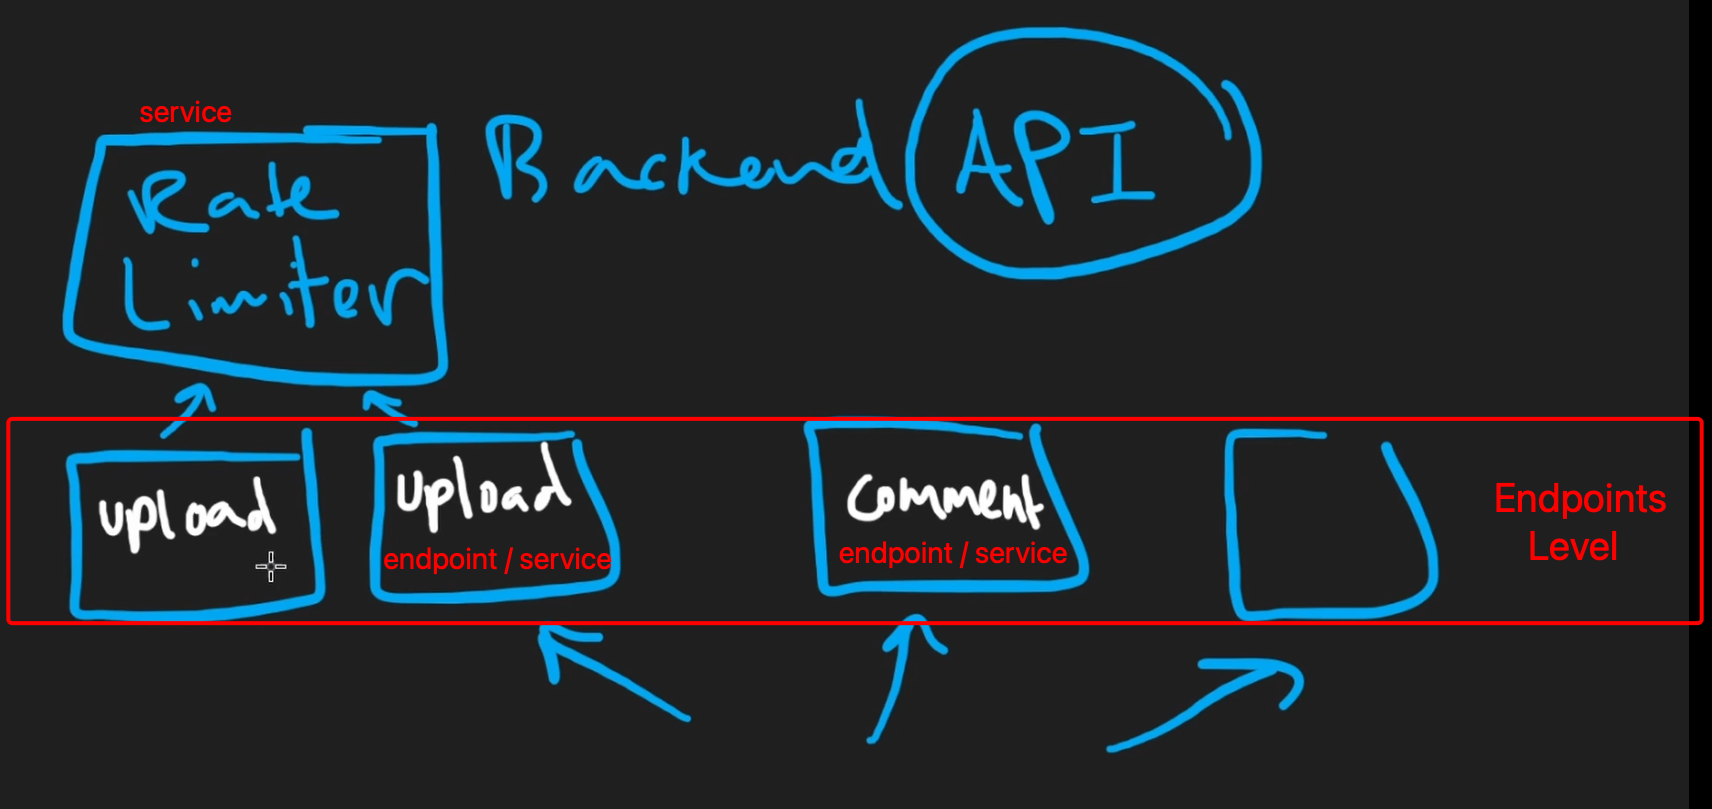 service
Rate
Limiter
Backend API
upload
Upload
endpoint / service
Comment
endpoint / service
Endpoints
Level